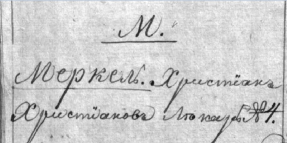 М.
Меркель. Христіанъ
Христіановъ Лѣкарь № 4.